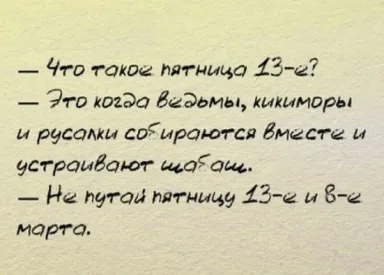 — Что такое пятница 13-е?
— Это когда ведьмы, кикиморы
и русалки собираются вместе и
устраивают шабаш.
— Не путай пятницу 13-е и 8-е
марта.